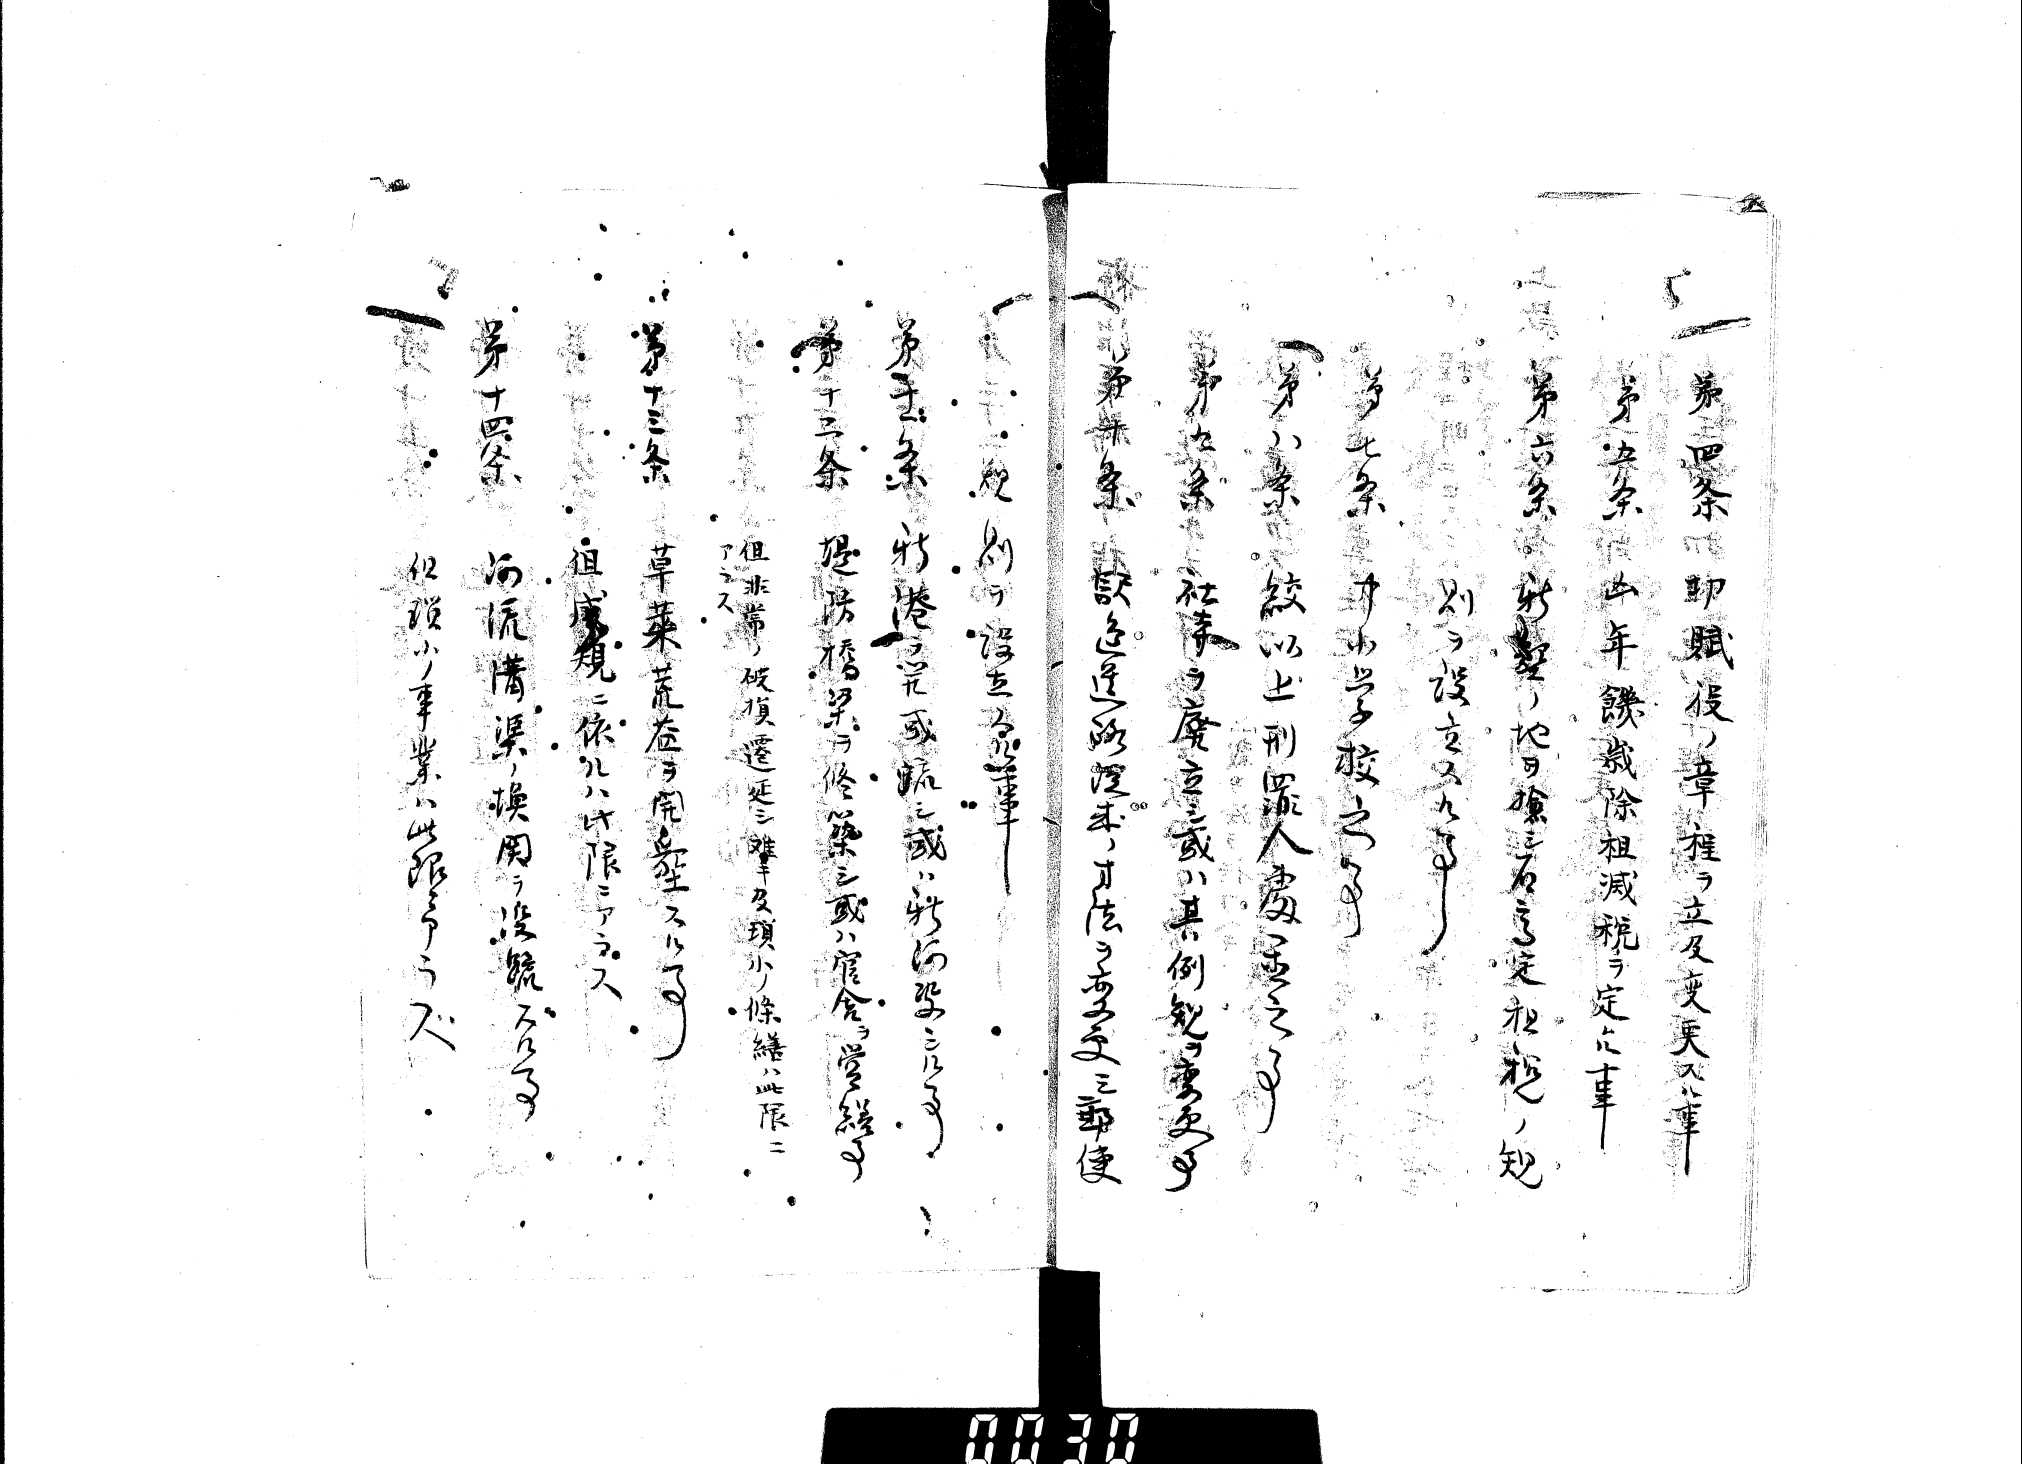 第四条 賦役ノ章程ヲ立及変更スル事
第五条 凶年饑歳除租減税ヲ定ル事
第六条 新墾ノ地ヲ検シ石高定租税ノ規
則ヲ設立スル事
第七条 中小学校之事
第八条 絞以上刑罪人處置之事
第九条 社寺ヲ廃立シ或ハ其例規ヲ変更事
第十条 駅逓道路程未ノ方法ヲ変更シ郵便
規則ヲ設立ル事
第十一条 新港ヲ開或疏シ或ハ新河設シル事
第十二条 堤防橋梁ヲ修築シ或ハ官舎ヲ営繕事
但非常ノ破損遷延シ難キ及瑣小ノ修繕ハ此限ニ
アラス
第十三条 草莱荒蕪ヲ開墾スル事
但成規ニ依ルハ此限ニアラス
第十四条 河流溝渠ノ換関ヲ浚疏スル事
但瑣小ノ事業ハ此限ニアラズ
0030